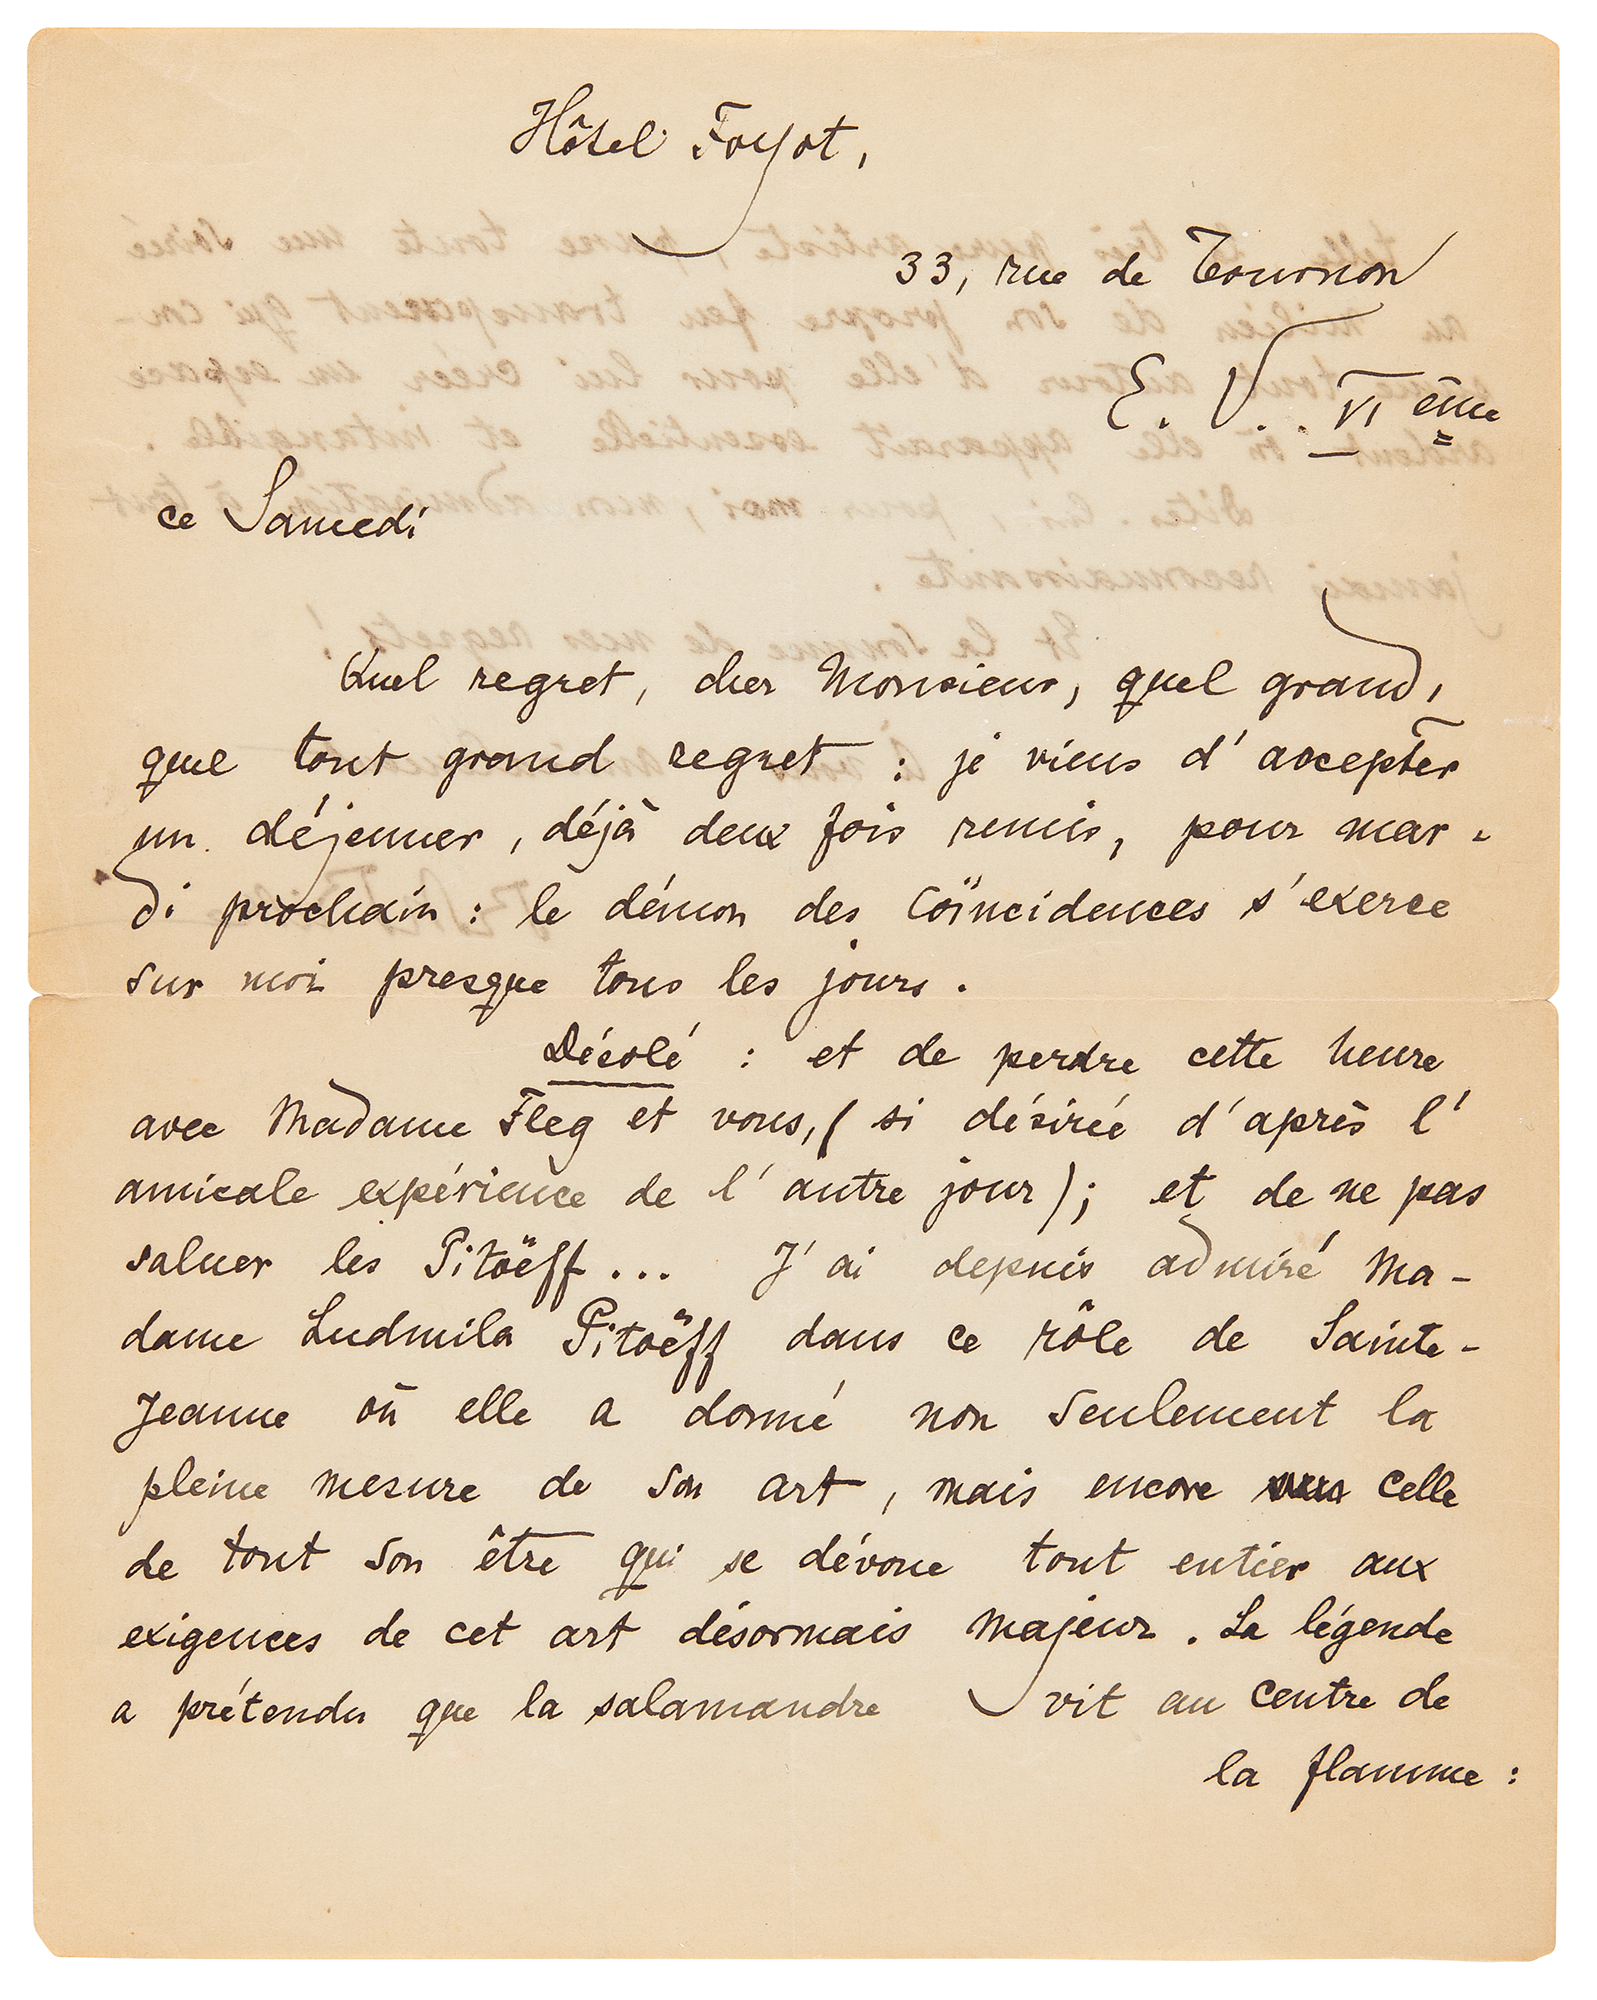 Hôtel Foyot,
33, rue de Tournon
E. V. . VI ème
ce Samedi
Quel regret, cher Monsieur, quel grand,
quel tout grand regret : je viens d'accepter
un déjeuner, déjà deux fois remis, pour mar-
di prochain : le démon des coïncidences s'exerce
sur moi presque tous les jours.
Désolé : et de perdre cette heure
avec Madame Fleg et vous, (si désirée d'après l'
amicale expérience de l'autre jour) ; et de ne pas
saluer les Pitoëff ... J'ai depuis admiré Ma-
dame Ludmila Pitoëff dans ce rôle de Sainte-
Jeanne où elle a donné non seulement la
pleine mesure de son art, mais encore celle
de tout son être qui se dévoue tout entier aux
exigences de cet art désormais majeur. La légende
a prétendu que la salamandre vit au centre de
la flamme :